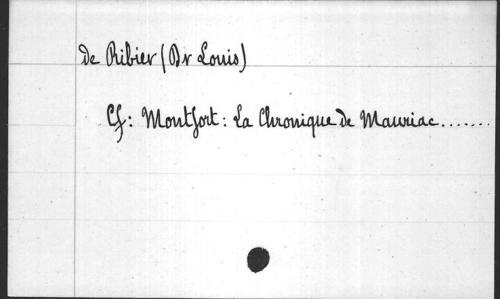 de Ribier (Dr Louis)
Cf: Montfort: La Chronique de Mauriac.......